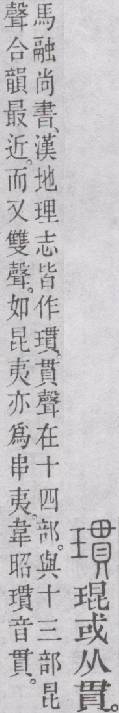 瑻琨或从貫。
馬融尚書、漢地理志皆作瑻。貫聲在十四部。與十三部昆
聲合韻最近。而又雙聲。如昆夷亦為串夷。韋昭瑻音貫。